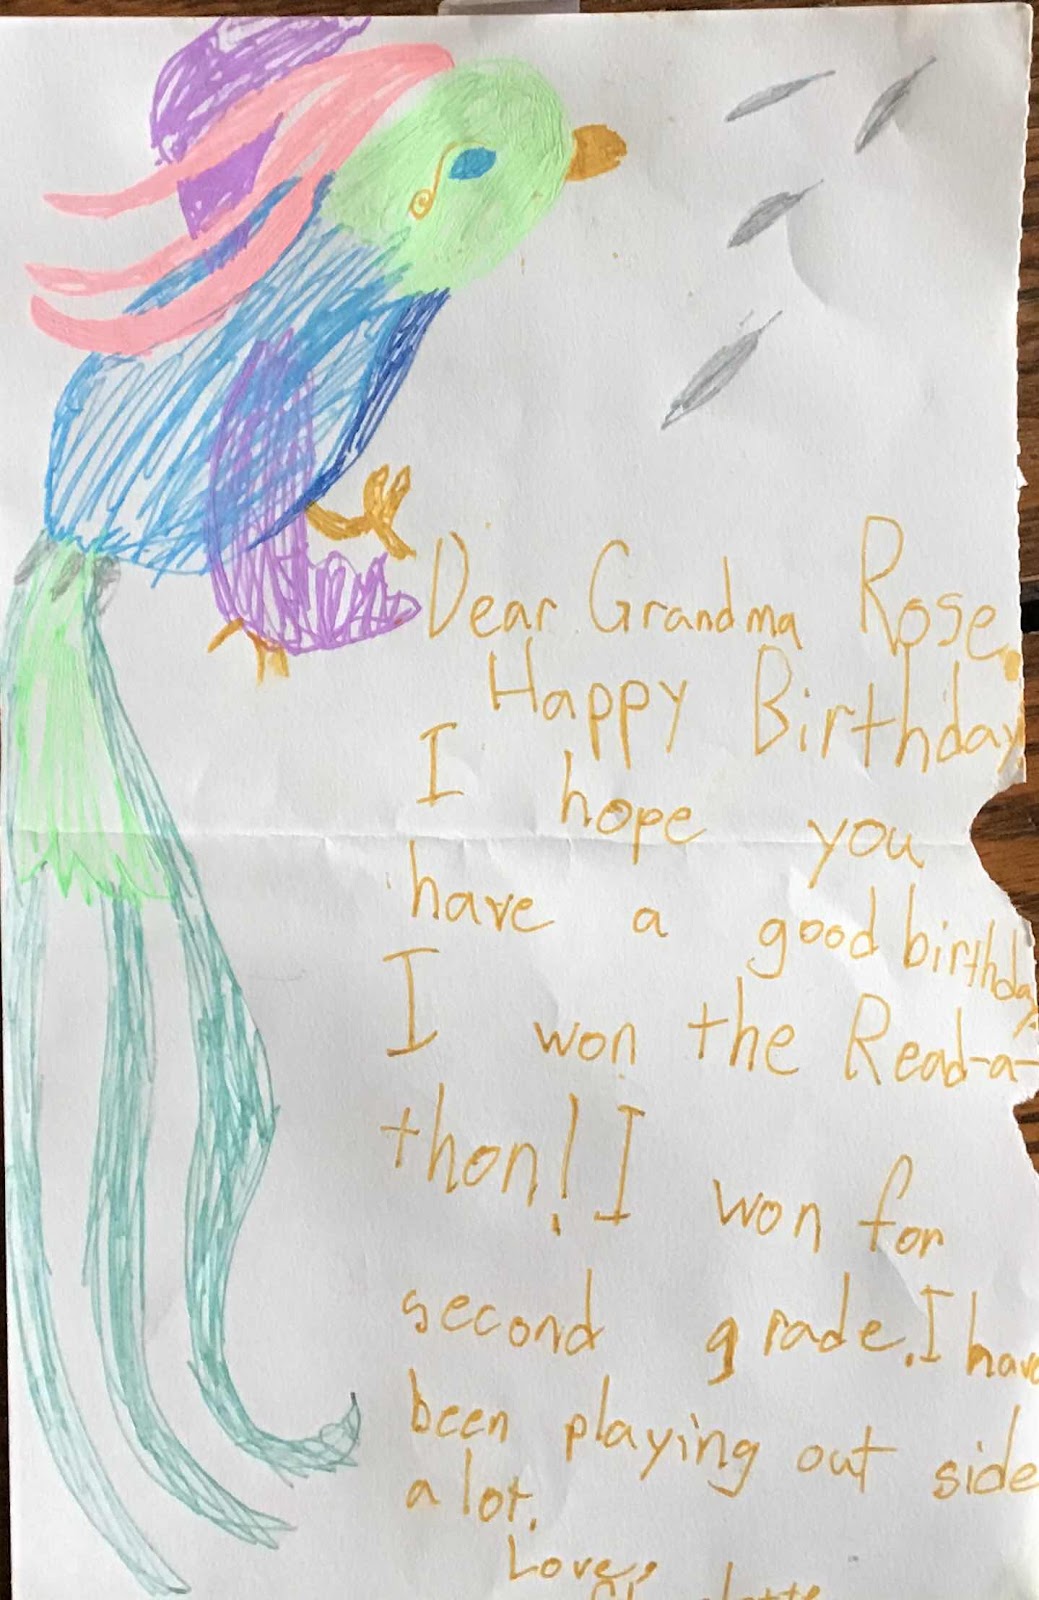 Dear Grandma Rose,
Happy Birthday.
I hope you
have a good birthday.
I won the Read-a-
thon! I won for
second grade. I have
been playing out side
a lot.
Love,